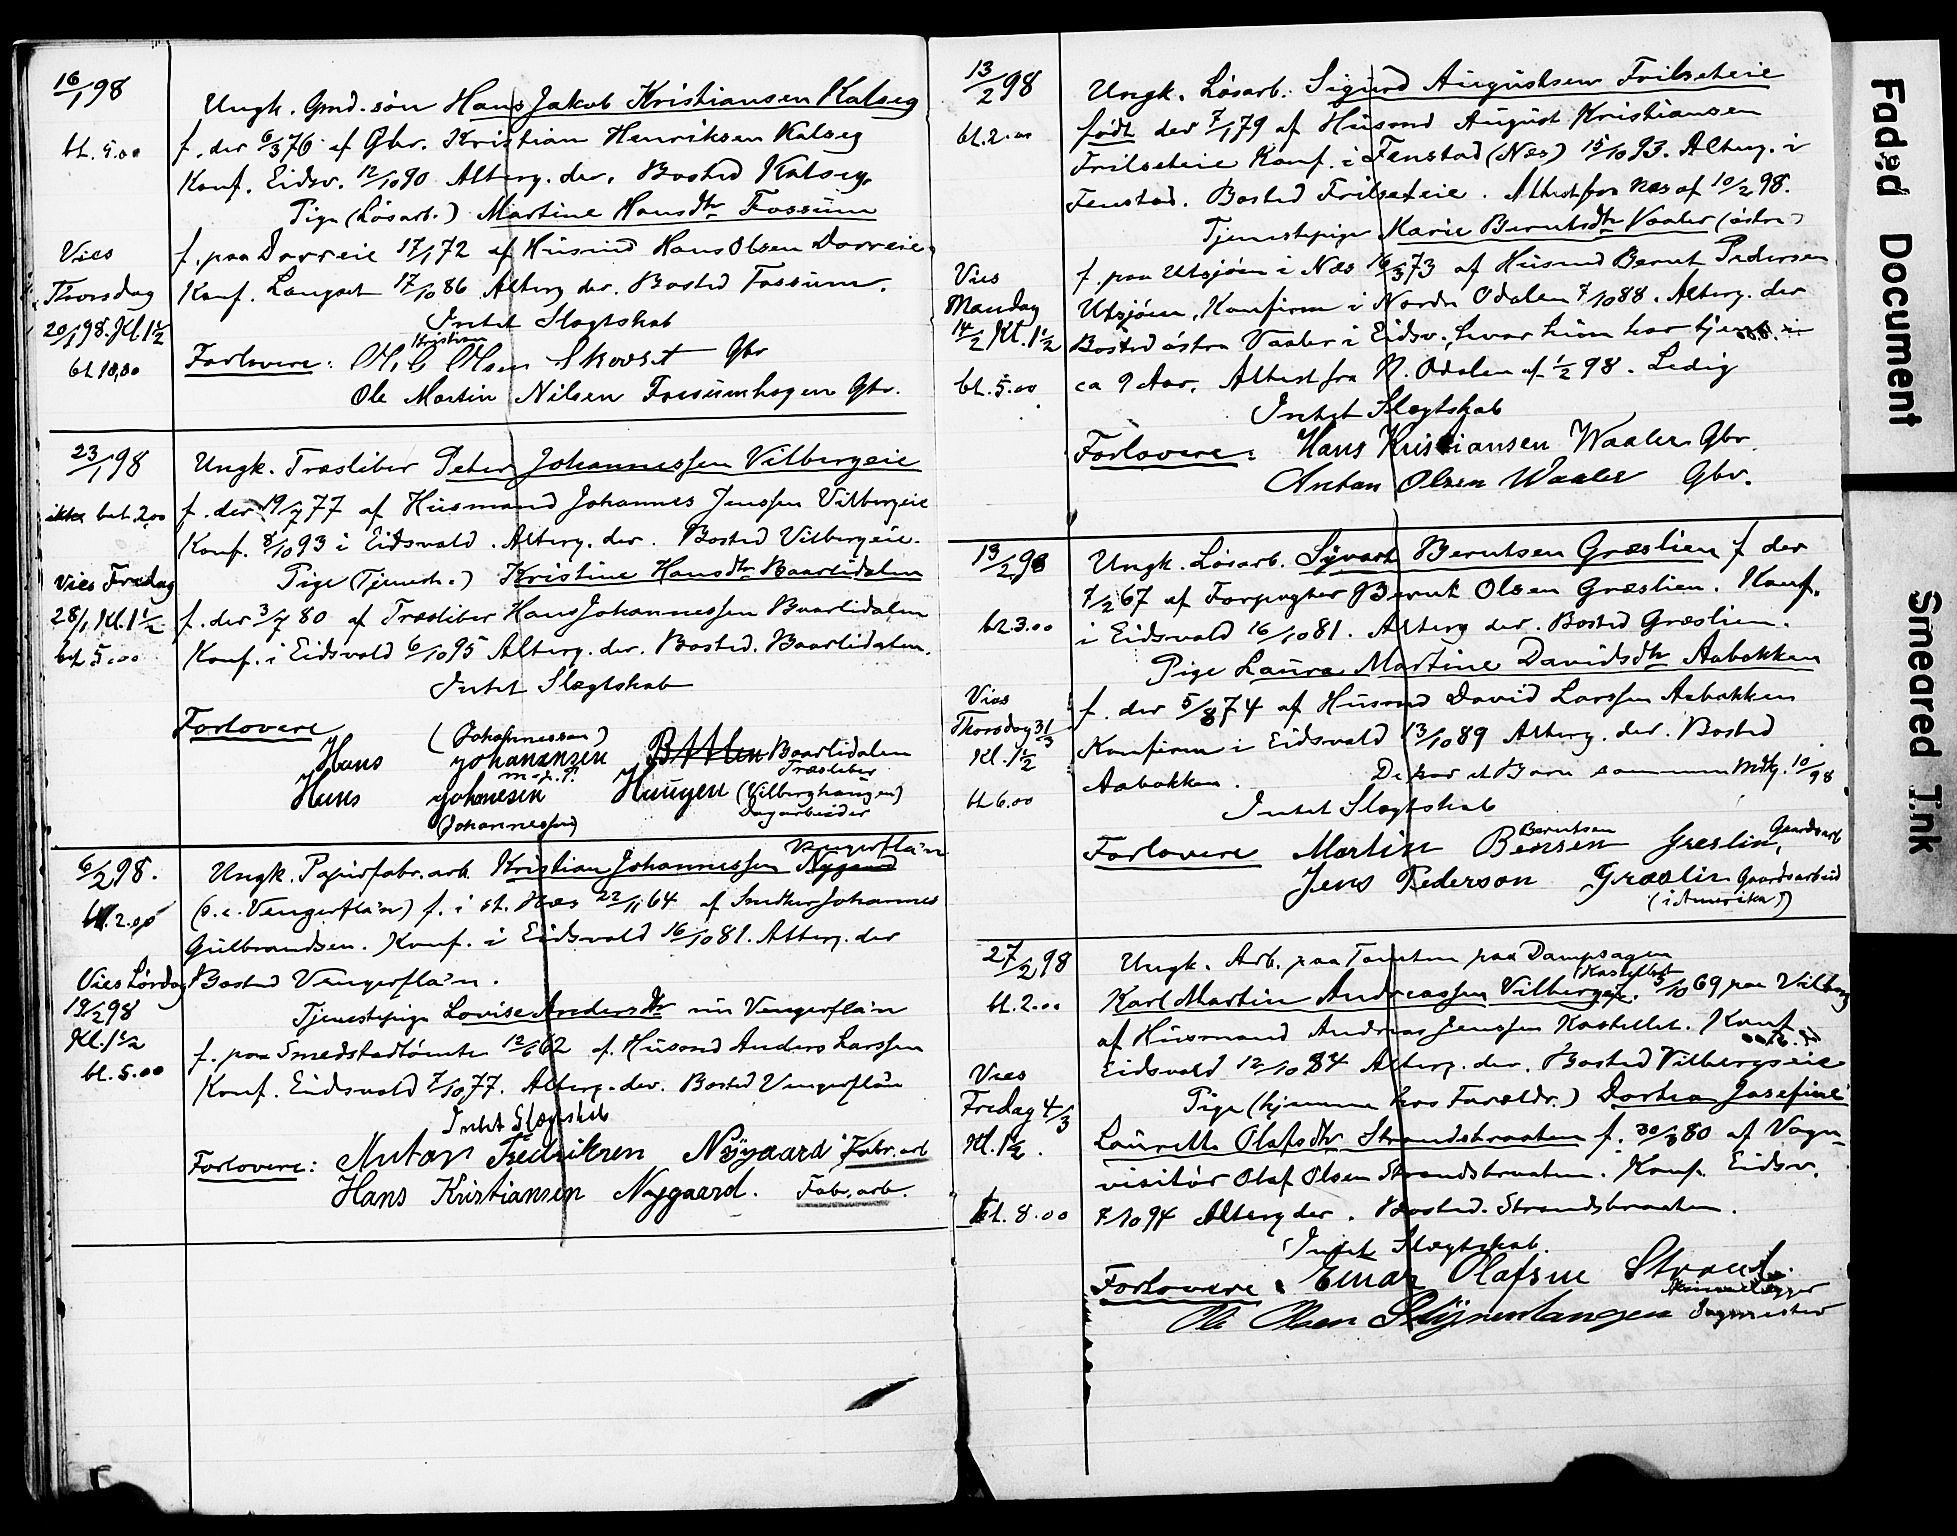 16/1 98
Ungk. Gmd. søn Hans Jakob Kristiansen Kalseg
bt. 5.00
f. der 6/3 76 af Gbr. Kristian Henriksen Kalseg
Konf. Eidsv. 12/10 90 Alterg. der. Bosted Kalseg.
Pige (Løsarb.) Martine Hansdtr Fossum
Vies
f. paa Dorreie 17/1 72 af Husmd Hans Olsen Dorreie
Thorsdag
Konf. Langset 17/10 86 Alterg. der. Bosted Fossum.
20/1 98. Kl. 1½
Intet Slægtskab
bt. 10,00
Kristian
Forlovere: Ole C Olsen Gbr
Ole Martin Nilsen Fossumhagen Gbr.
23/1 98
Ungk. Træsliber Peter Johannessen Vilbergeie
ikke bet. 2.00
f. der 19/7 77 af Husmand Johannes Jenssen Vilbergeie
Konf. 8/10 93 i Eidsvold. Alterg. der. Bosted Vilbergeie.
Vies Fredag
Pige (Tjenesteh.) Kristine Hansdtr Baarlidalen
28/1 Kl. 1½
f. der 3/7 80 af Træsliber Hans Johannessen Baarlidalen
bt 5.00
Konf. i Eidsvold 6/10 95 Alterg. der. Bosted. Baarlidalen.
Intet Slægtskab
Forlovere
(Johannessen)
Hans Johanansen Baarlidalen
m. p. P. Træsliber
Hans Johnesen Haugen (Vilberghaugen)
(Johannessen) Dagarbeider
6/2 98.
Vengerflå'n
Ungk. Papirfabr. arb. Kristian Johannessen Nygaard
bt. 2.00
(s. e. Vengerflå'n) f. i st. Næs 22/11 64 af Snedker Johannes
Gulbrandsen. Konf. i Eidsvold 16/10 81. Alterg. der
Vies Lørdag
Bosted Vengerflå'n.
19/2 98
Tjenestepige Lovise Andersdtr nu Vengerflå'n
Kl. 1½
f. paa Smedstadtomten 12/6 62 af Husmd Anders Larssen
bt. 5.00
Konf. Eidsvold 7/10 77. Alterg. der. Bosted Vengerflån
Intet Slægtskab
Forlovere: Anton Fredriksen Nÿgaard Fabr. arb
Hans Kristiansen Nygaard. Fabr. arb.
13/2 98
Ungk. Løsarb. Sigurd Augustsen Frilseteie
bt. 2.00
født der 7/1 79 af Husmd August Kristiansen
Frilseteie Konf. i Fenstad (Næs) 15/10 93. Alterg. i
Fenstad. Bosted Frilseteie. Attest fra Næs af 10/2 98.
Tjenestepige Marie Berntsdtr Vaaler (østre)
Vies
f. paa Utsjøen i Næs 16/3 73 af Husmd Bernt Pedersen
Mandag
Utsjøen, Konfirm i Nordr Odalen 7/10 88. Alterg. der
14/2 Kl. 1½
Bosted østre Vaaler i Eidsv., hvor hun har tjent i
bt. 5.00
ca 9 Aar. Attest fra N. Odalen af 1/2 98. Ledig
Intet Slægtskab
Forlovere: Hans Kristiansen Waaler Gbr.
Anton Olsen Waaler Gbr.
13/2 98
Ungk. Løsarb. Syvart Berntsen Græslien f der
7/2 67 af Forpagter Bernt Olsen Græslien. Konf.
bt. 3.00
i Eidsvold 16/10 81. Alterg der. Bosted Græslien.
Pige Laura Martine Davidsdtr Aabakken
Vies
f. der 5/8 74 af Husmd David Larssen Aabakken
Thorsdag 3/3
Konfirm i Eidsvold 13/10 89 Alterg. der. Bosted
Kl. 1½
Aabakken. De har et Barn sammen Mdtg. 10/98
bt 6.00
Intet Slægtskab
Berntsen
Forlovere Martin Bensen Greslin, Gaardsarb
Jens Pederson Græslin Gaardsarbeid
(i Amerika?)
27/2 98
Ungk. Arb. paa Tomten paa Dampsagen
Kastellet
bt. 2.00
Karl Martin Andreassen Vilbergeie f. 5/10 69 paa Vilberg
af Husmand Andreas Jenssen Kastellet. Konf.
Eidsvold 12/10 84 Alterg. der. Bosted Vilbergseie
Vies
Pige (hjemme hos Forældr.) Dorthea Josefine
Fredag 4/3
Laurette Olafsdtr Strandsbraaten f. 30/3 80 af Vogn-
Kl. 1½.
visitør Olaf Olsen Strandsbraaten. Konf. Eidsv.
bt. 8.00
7/10 94 Alterg der. Bosted. Strandsbraaten.
Intet Slægtskab.
Forlovere: Einar Olafsne Strand.
Ole Olsen Sagmester
Faded Document
Smeared Ink